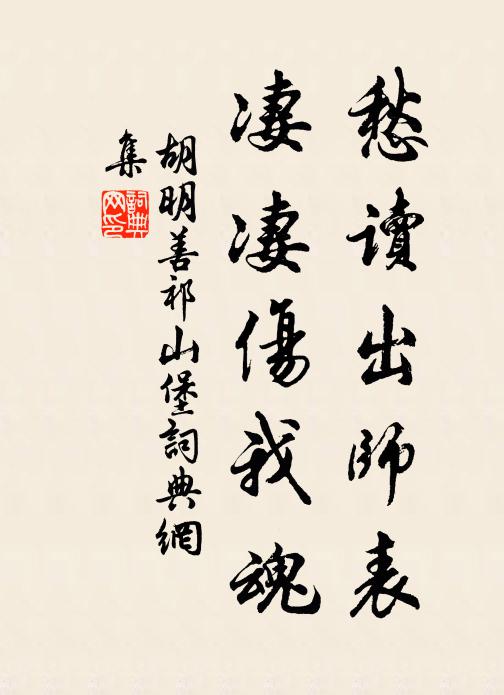 愁讀出師表
淒淒傷我魂
胡明善祁山堡詞典網
集
詞典網印